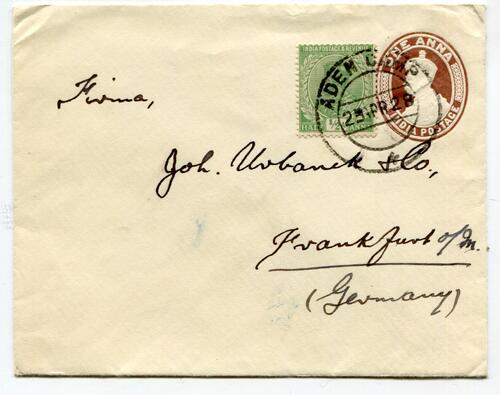 INDIA POSTAGE & REVENUE
HALF ½ ANNA
ONE ANNA
INDIA POSTAGE
ADEN
APR 28
Firma,
Joh. Urbanek & Co.,
Frankfurt a/M.
(Germany)